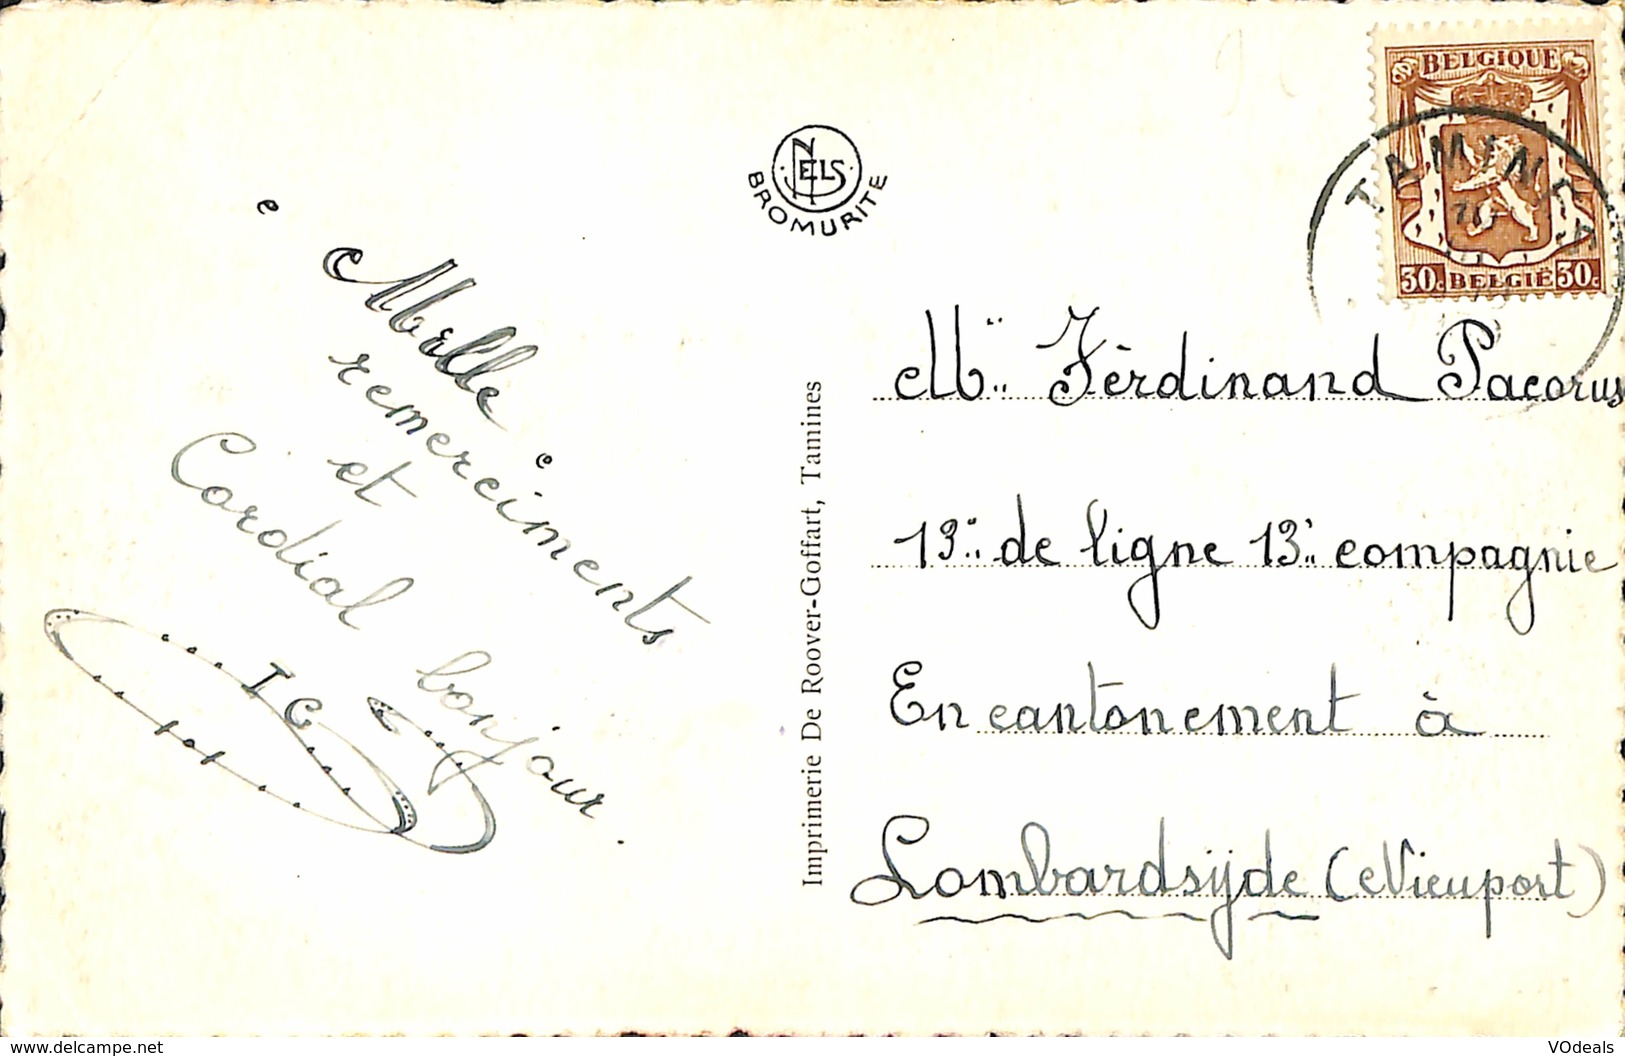 BELGIQUE
TAMINES
30c BELGIË 30c
NELS
BROMURITE
Mille
remerciments
et
Cordial bonjour.
I G
Imprimerie De Roover-Goffart, Tamines
M. Ferdinand Pacorus
13e de ligne 13e compagnie
En cantonement à
Lombardsijde (Nieuport)
www.delcampe.net
VOdeals